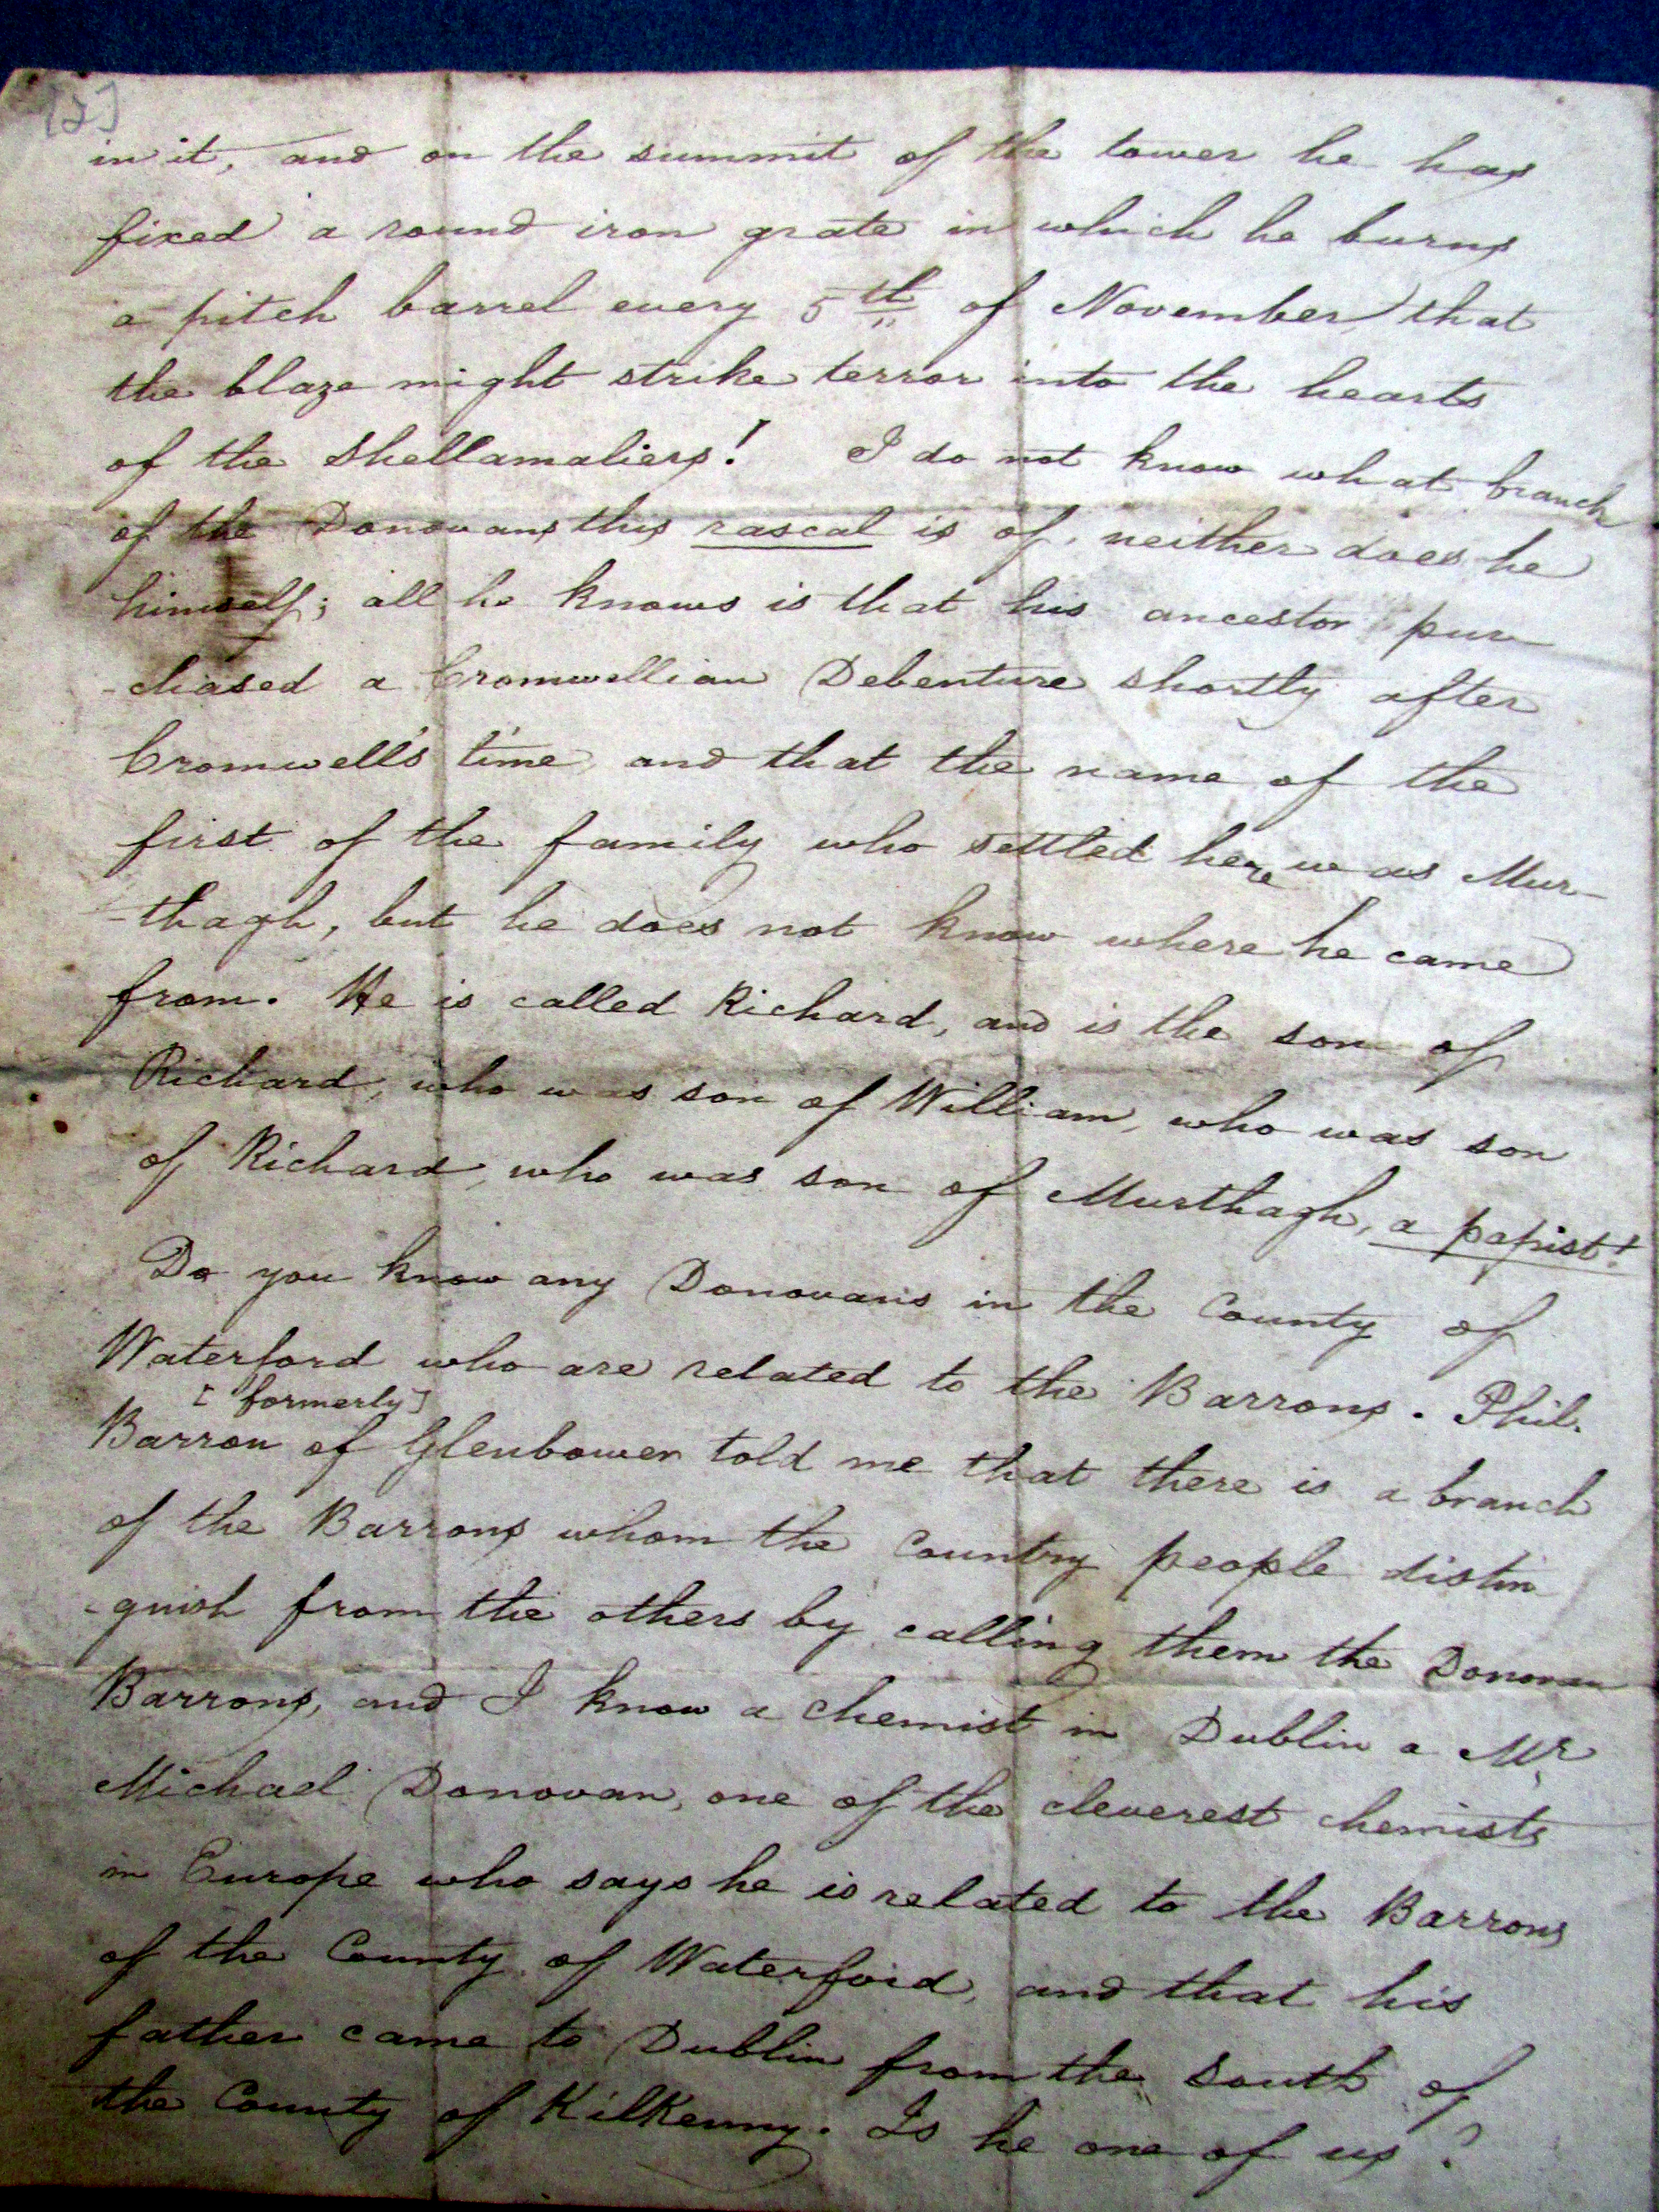 [2]
in it, and on the summit of the tower he has
fixed a round iron grate in which he burns
a pitch barrel every 5th of November that
the blaze might strike terror into the hearts
of the Shellamaliers! I do not know what branch
of the Donovans this rascal is of, neither does he
himself; all he knows is that his ancestor pur
-chased a Cromwellian Debenture shortly after
Cromwell's time, and that the name of the
first of the family who settled here was Mur-
-thagh, but he does not know where he came
from. He is called Richard, and is the son of
Richard, who was son of William, who was son
of Richard, who was son of Murthagh, a papist!
Do you know any Donovans in the County of
Waterford who are related to the Barrons. Phil.
[formerly]
Barron of Glenbower told me that there is a branch
of the Barrons whom the Country people distin
-guish from the others by calling them the Donovan
Barrons, and I know a chemist in Dublin a Mr
Michael Donovan, one of the cleverest chemists
in Europe who says he is related to the Barrons
of the County of Waterford, and that his
father came to Dublin from the South of
the County of Kilkenny. Is he one of us?